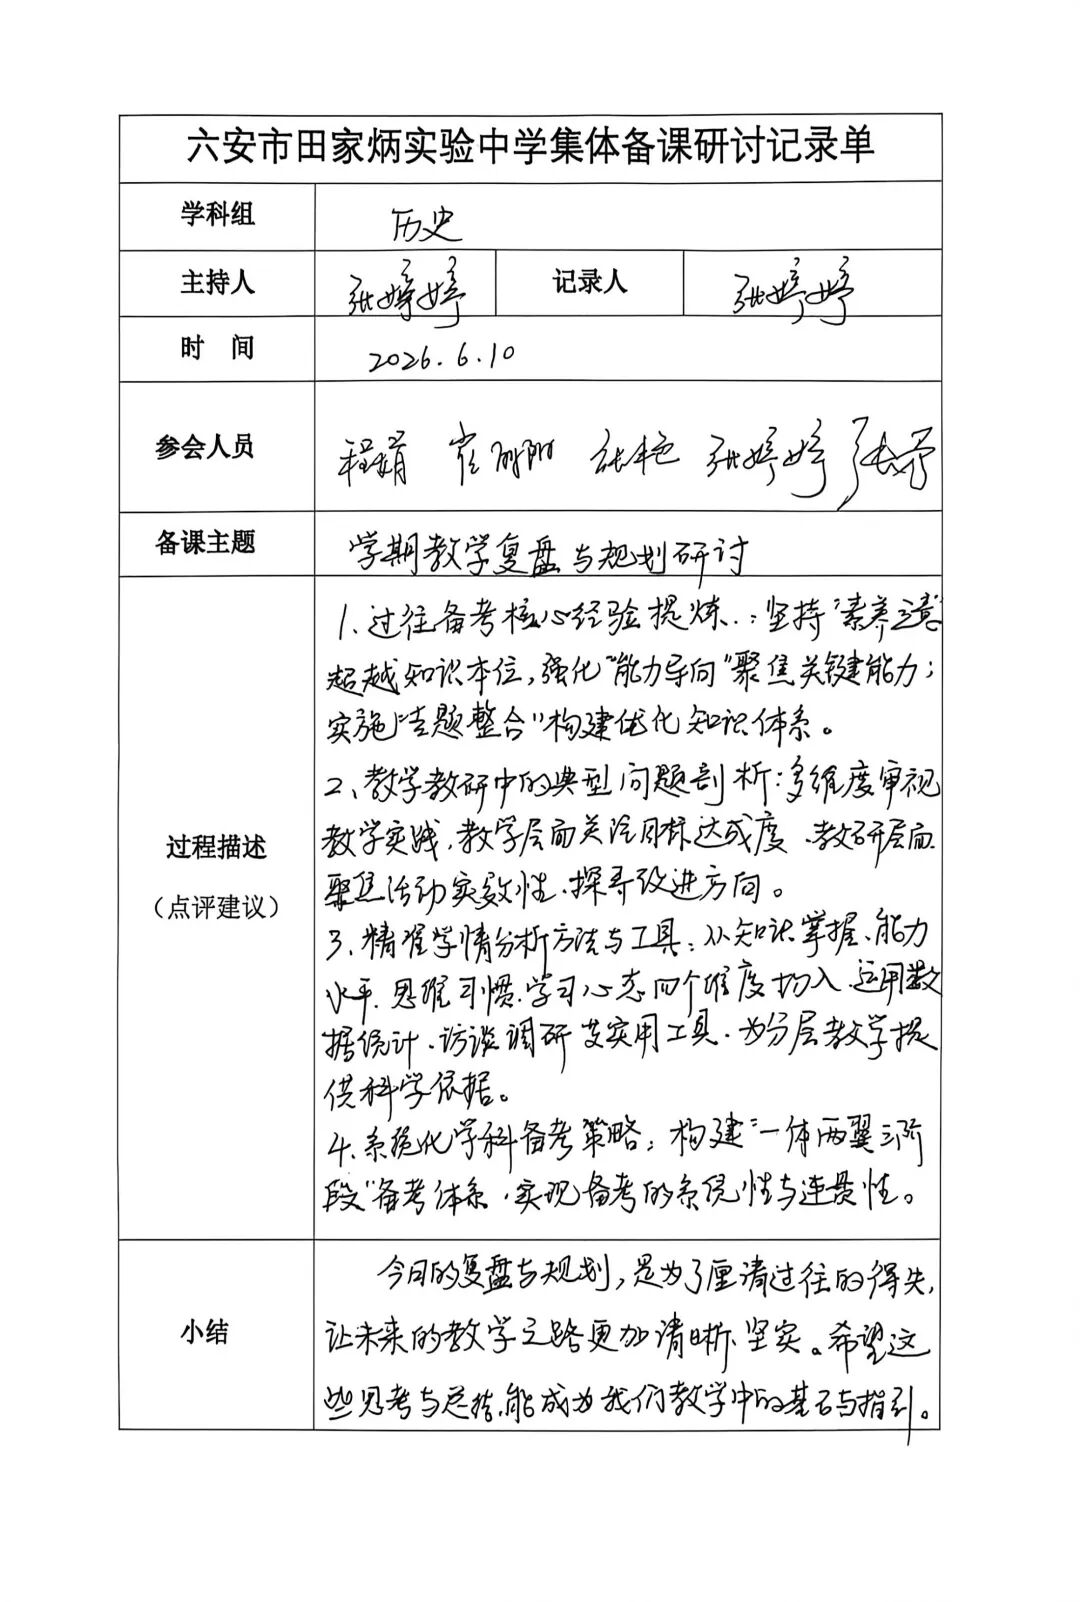 六安市田家炳实验中学集体备课研讨记录单
学科组 历史
主持人 张婷婷 记录人 张婷婷
时 间 2026.6.10
参会人员 程娟 张艳 张婷婷
备课主题 学期教学复盘与规划研讨
过程描述
（点评建议）
1、过往备考核心经验提炼：坚持“素养立意”
超越知识本位，强化“能力导向”聚焦关键能力；
实施“专题整合”构建优化知识体系。
2、教学教研中的典型问题剖析：多维度审视
教学实践，教学层面关注目标达成度、教研层面
聚焦活动实效性、探寻改进方向。
3、精准学情分析方法与工具：从知识掌握、能力
水平、思维习惯、学习心态四个维度切入、运用数
据统计、访谈调研及实用工具、为分层教学提
供科学依据。
4、系统化学科备考策略：构建“一体两翼三阶
段”备考体系、实现备考的系统性与连贯性。
小结
今日的复盘与规划，是为了厘清过往的得失，
让未来的教学之路更加清晰、坚实。希望这
些思考与总结，能成为我们教学中的基石与指引。